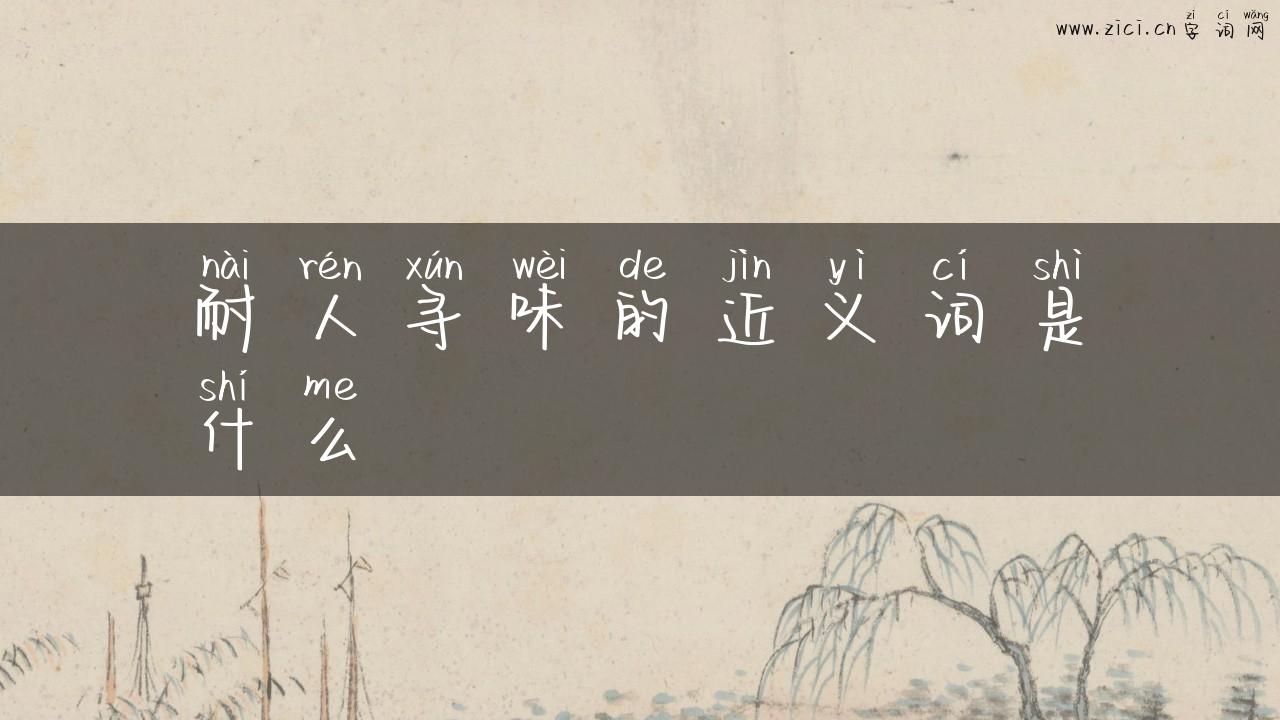 zì cí wǎng
www.zici.cn 字词网
nài rén xún wèi de jìn yì cí shì
耐人寻味的近义词是
shí me
什么